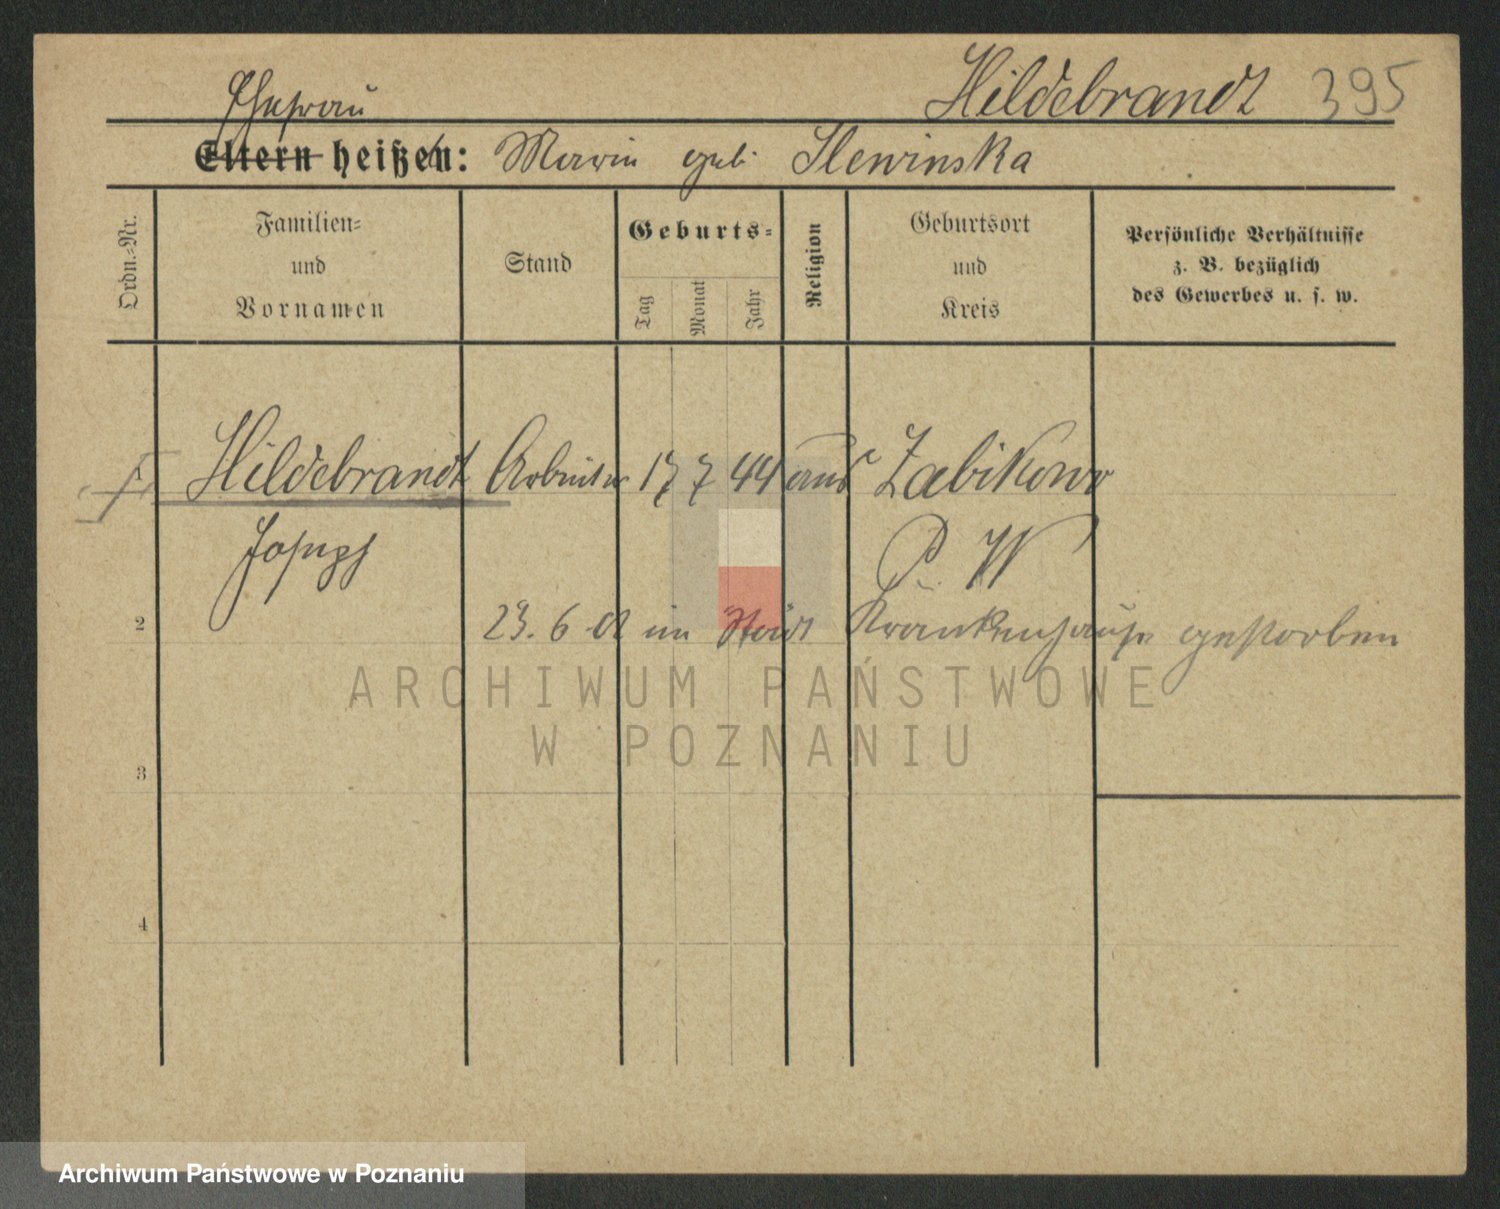 Hildebrandt 395
Ehefrau
Eltern heißen: Marie geb. Slewinska
Ordn.-Nr.
Familien-
und
Vornamen
Stand
Geburts-
Tag
Monat
Jahr
Religion
Geburtsort
und
Kreis
Persönliche Verhältnisse
z. B. bezüglich
des Gewerbes u. s. w.
Hildebrandt Arbeiter 17 7 44 Zabikowo
Joseph P. W
2 23. 6 im Städt Krankenhause gestorben
ARCHIWUM PAŃSTWOWE
W POZNANIU
3
4
Archiwum Państwowe w Poznaniu